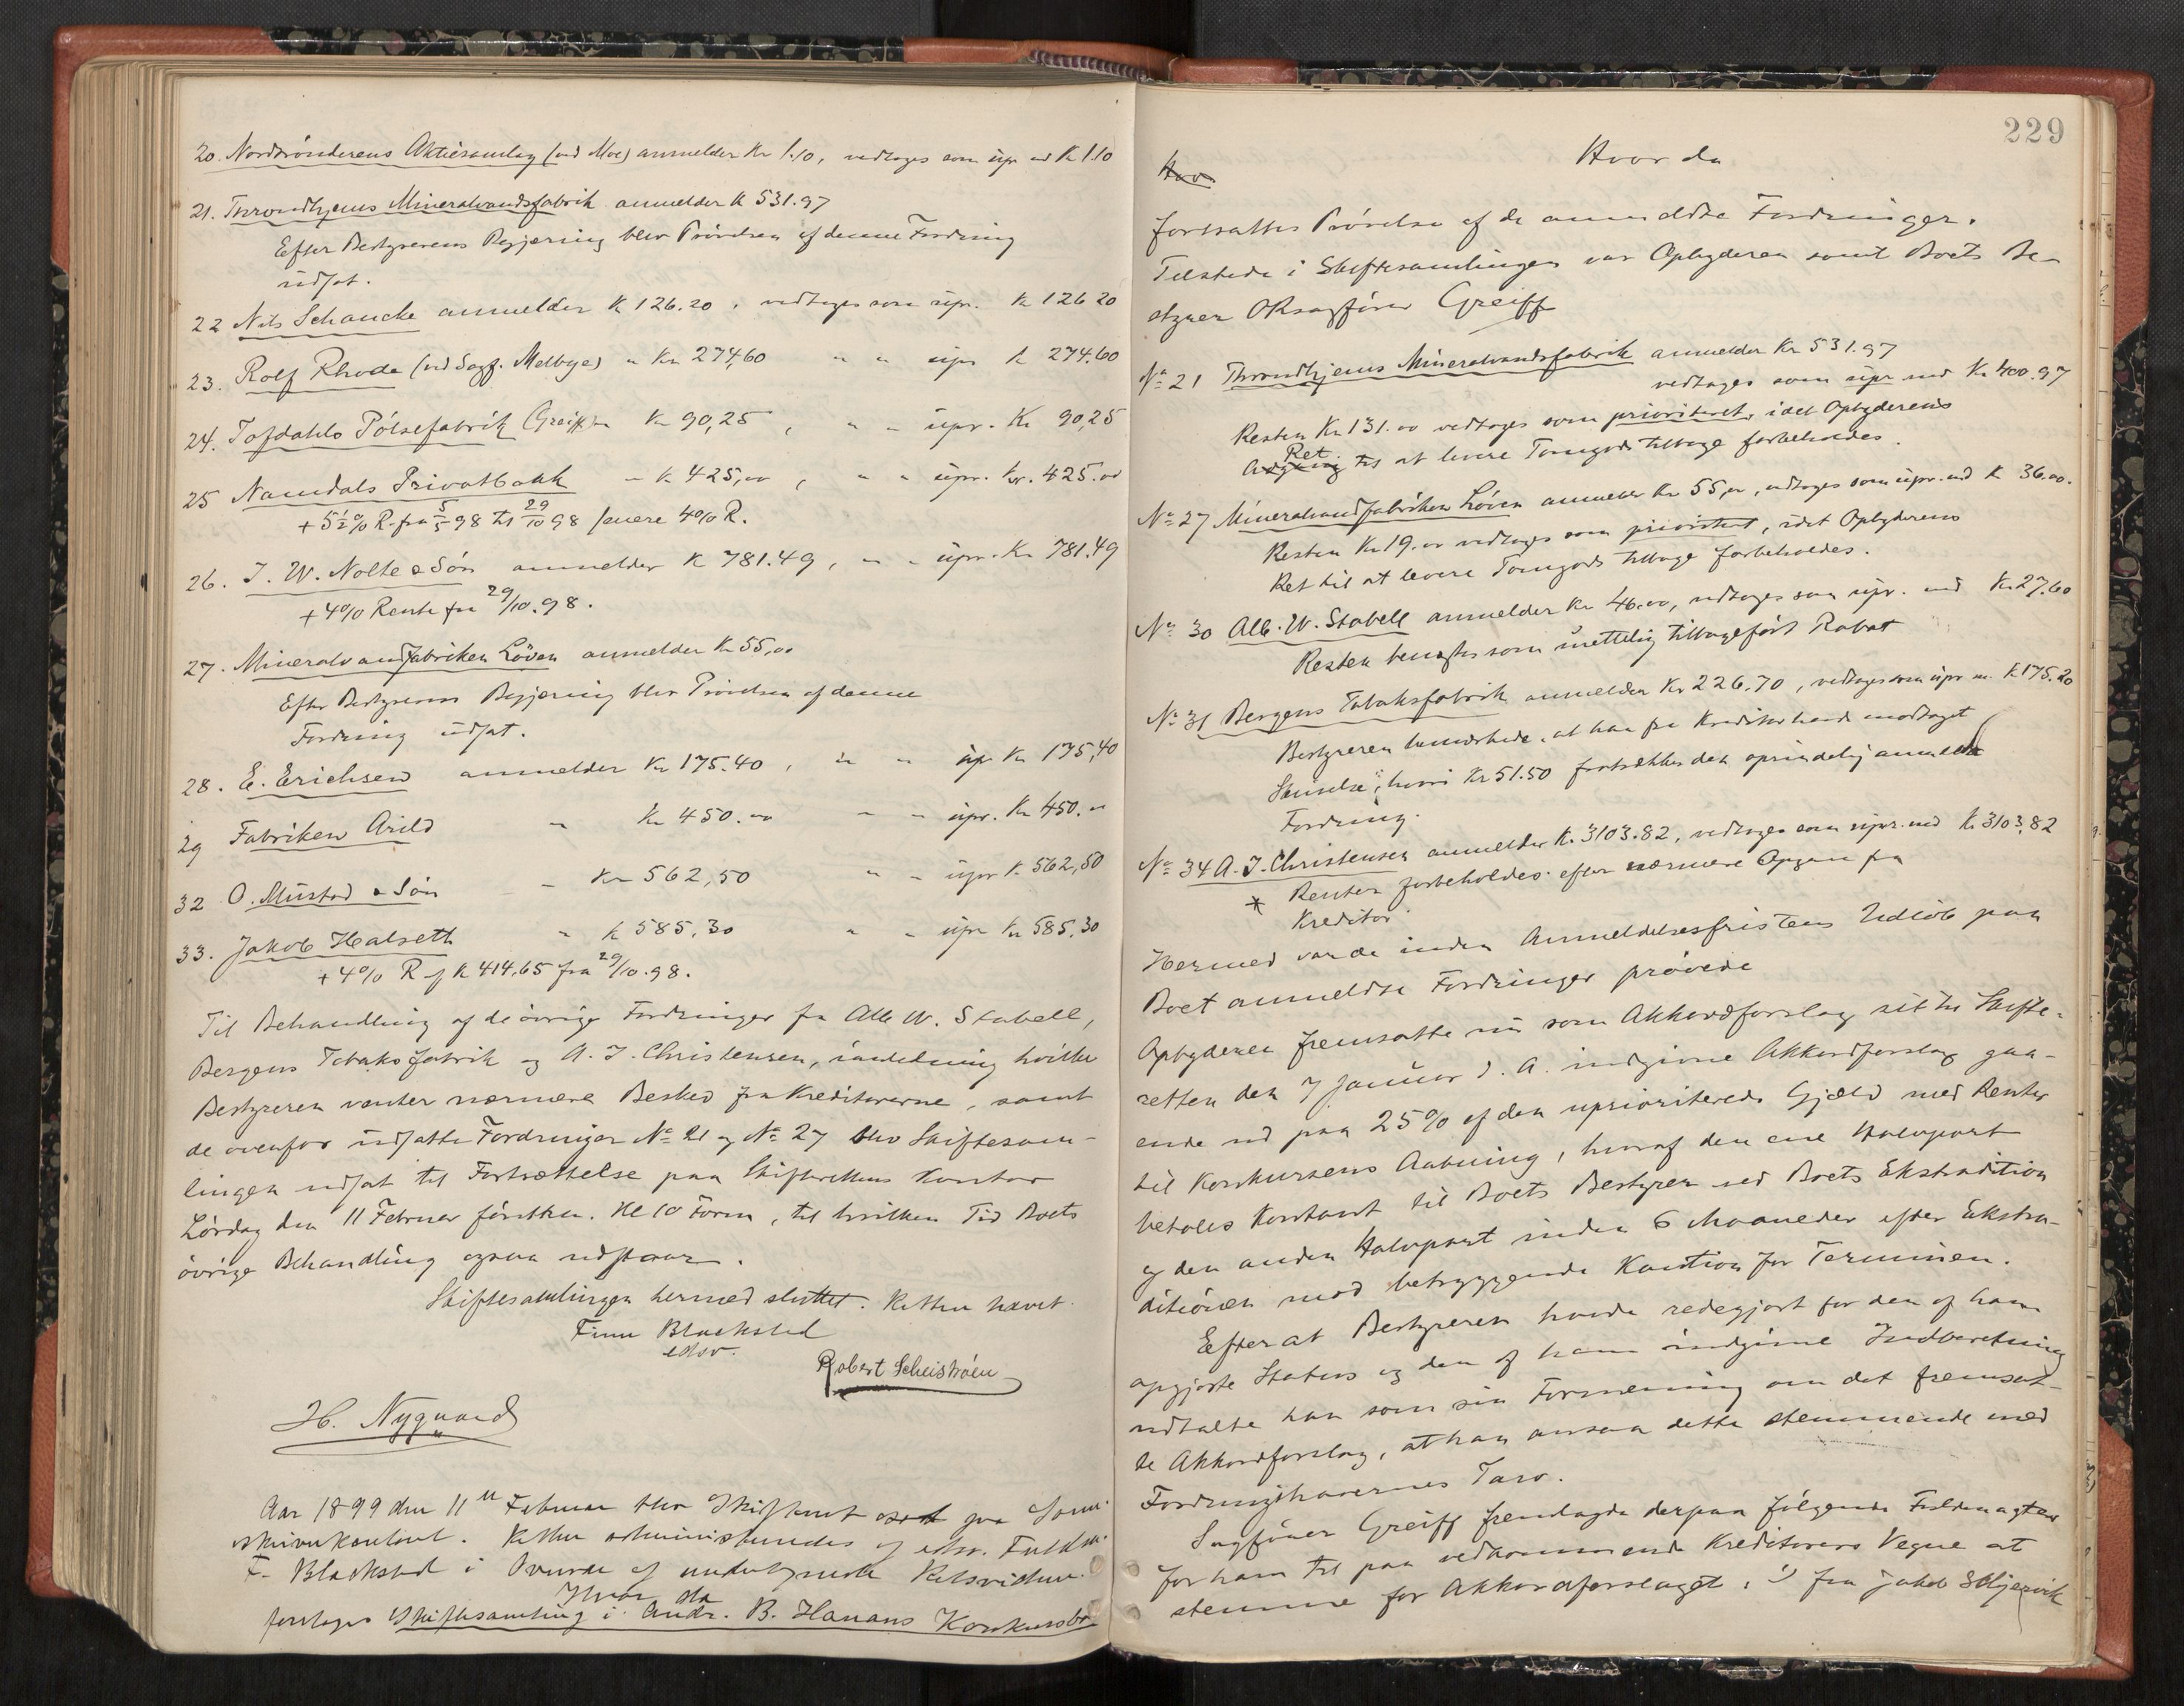 20. Nordtrönderens Aktiesamlag (ved Moe) anmelder Kr 1.10, vedtages som upr med Kr 1.10
21. Throndhjems Mineralvandsfabrik anmelder Kr 531.97
Efter Bestyrerens Begjæring blev Prövelsen af denne Fordring
udsat.
22 Nils Schancke anmelder Kr 126.20, vedtages som upr. Kr 126 20
23. Rolf Rhode (ved Sagf. Melbye) " Kr 274,60 " " upr Kr 274.60
24. Tofdahls Pölsefabrik (Greiff) " Kr 90,25, " " upr. Kr 90,25
25 Namdals Privatbank " Kr 425,00, " " upr. Kr. 425.00
+ 5½% R. fra 5/5 98 til 29/10 98 senere 4% R.
26. J. W. Nolte & Sön anmelder Kr 781.49, " " upr. Kr 781.49
+ 4% Rente fra 29/10.98.
27. Mineralvandfabriken Löven anmelder Kr 55,00
Efter Bestyrerens Begjæring blev Prövelsen af denne
Fordring udsat.
28. E. Erichsen anmelder Kr 175.40, " " upr Kr 175,40
29 Fabriken Arild " Kr 450.00 " " upr. Kr 450.00
32 O. Mustad & Sön " Kr 562,50 " " upr Kr 562,50
33. Jakob Halseth " Kr 585,30 " " upr Kr 585,30
+ 4% R af Kr 414.65 fra 29/10.98.
Til Behandling af de övrige Fordringer fra Alb W. Stabell,
Bergens Tobaksfabrik og A. J. Christensen, i anledning hvilke
Bestyreren venter nærmere Besked fra Kreditorerne, samt
de ovenfor udsatte Fordringer No 21 og No 27 blev Skiftesam-
lingen udsat til Fortsættelse paa Skifterettens Kontor
Lördag den 11 Februar förstk. Kl 10 Form, til hvilken Tid Boets
övrige Behandling ogsaa udstaar.
Skiftesamlingen hermed sluttet. Retten hævet.
Finn Blackstad
edsv.
Robert Scheiströen
H. Nygaard
Aar 1899 den 11te Februar blev Skifteret sat paa Soren-
skriverkontoret. Retten administreredes af edsv. Fuldm.
F. Blackstad i Overvær af undertegnede Retsvidne.
Hvor da
foretages Skiftesamling i Andr. B. Hanans Konkursbo
229
Hvor da
Hvo
fortsattes Prövelse af de anmeldte Fordringer.
Tilstede i Skiftesamlingen var Opbyderen samt Boets Be-
styrer ORsagförer Greiff
No 21 Throndhjems Mineralvandsfabrik anmelder Kr 531.97
vedtages som upr med Kr 400.97
Resten Kr 131.00 vedtages som prioriteret, idet Opbyderens
Ret
Adgang til at levere Tomgods tilbage forbeholdes.
No 27 Mineralvandfabriken Löven anmelder Kr 55,00, vedtages som upr. med Kr 36.00.
Resten Kr 19.00 vedtages som prioriteret, idet Opbyderens
Ret til at levere Tomgods tilbage forbeholdes.
No 30 Alb. W. Stabell anmelder Kr 46.00, vedtages som upr. med Kr 27.60
Resten benegtes som urettelig tilbageført Rabat
No 31 Bergens Tobaksfabrik anmelder Kr 226.70, vedtages som upr m. Kr 175.20
Bestyreren bemærkede, at han fra Kreditor havde modtaget
Skrivelse, hvori Kr 51.50 fratrækkes den oprindelig anmeldte
Fordring.
No 34 A. J. Christensen anmelder Kr. 3103.82, vedtages som upr. med Kr 3103,82
* Renter forbeholdes efter nærmere Opgave fra
Kreditor.
Hermed var de inden Anmeldelsesfristens Udlöb paa
Boet anmeldte Fordringer prövede
Opbyderen fremsatte nu som Akkordforslag sit til Skifte-
retten den 7 Januar d. A. indgivne Akkordforslag gaa-
ende ud paa 25% af den uprioriterede Gjæld med Renter
til Konkursens Aabning, hvoraf den ene Halvpart
betales Kontant til Boets Bestyrer ved Boets Ekstradition
og den anden Halvpart inden 6 Maaneder efter Ekstra-
ditionen mod betryggende Kaution for Terminen.
Efterat Bestyreren havde redegjort for den af ham
opgjorte Status og den af ham indgivne Indberetning
udtalte han som sin Formening om det fremsat-
te Akkordforslag, at han ansaa dette stemmende med
Fordringshavernes Tarv.
Sagförer Greiff fremlagde derpaa fölgende Fuldmagter
for ham til paa vedkommende Kreditorers Vegne at
stemme for Akkordforslaget: 1) fra Jakob Skljervik